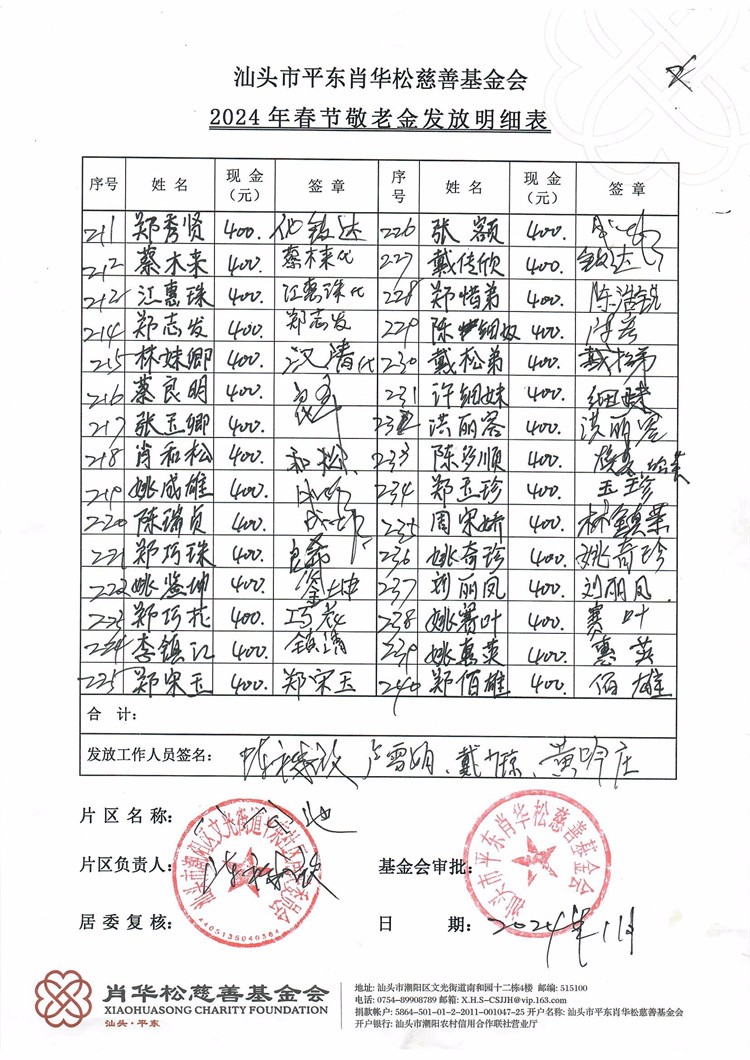 汕头市平东肖华松慈善基金会
2024年春节敬老金发放明细表
序号 姓名 现金（元） 签章 序号 姓名 现金（元） 签章
211 郑秀贤 400. 代 226 张额 400.
212 蔡木来 400. 蔡木来代 227 戴佳欣 400.
212 江惠珠 400. 江惠珠代 228 郑惜弟 400. 陈浩锐
214 郑志发 400. 郑志发 229 陈细奴 400.
215 林妹卿 400. 汉清代 230 戴松弟 400. 戴松弟
216 蔡良明 400. 231 许细妹 400. 细妹
217 张玉卿 400. 232 洪丽容 400. 洪丽容
218 肖和松 400. 和松 233 陈多顺 400.
219 姚成雄 400. 234 郑玉珍 400. 玉珍
220 陈瑞贞 400. 235 周宋娇 400. 林镇荣
221 郑巧珠 400. 236 姚奇珍 400. 姚奇珍
222 姚鉴坤 400. 鉴坤 237 刘丽凤 400. 刘丽凤
223 郑巧花 400. 巧花 238 姚赛叶 400. 赛叶
224 李镇江 400. 镇清 239 姚惠英 400. 惠英
225 郑宋玉 400. 郑宋玉 240 郑佰雄 400. 佰雄
合 计:
发放工作人员签名: 卢雪明、戴 、黄吟庄
片区名称:
片区负责人: 基金会审批:
居委复核: 日 期: 2024年1月
汕头市平东肖华松慈善基金会
肖华松慈善基金会
XIAOHUASONG CHARITY FOUNDATION
汕头·平东
地址: 汕头市潮阳区文光街道南和园十二栋4楼 邮编: 515100
电话: 0754-89908789 邮箱: X.H.S-CSJJH@vip.163.com
捐款帐户: 5864-501-01-2-2011-001047-25 开户名称: 汕头市平东肖华松慈善基金会
开户银行: 汕头市潮阳农村信用合作联社营业厅